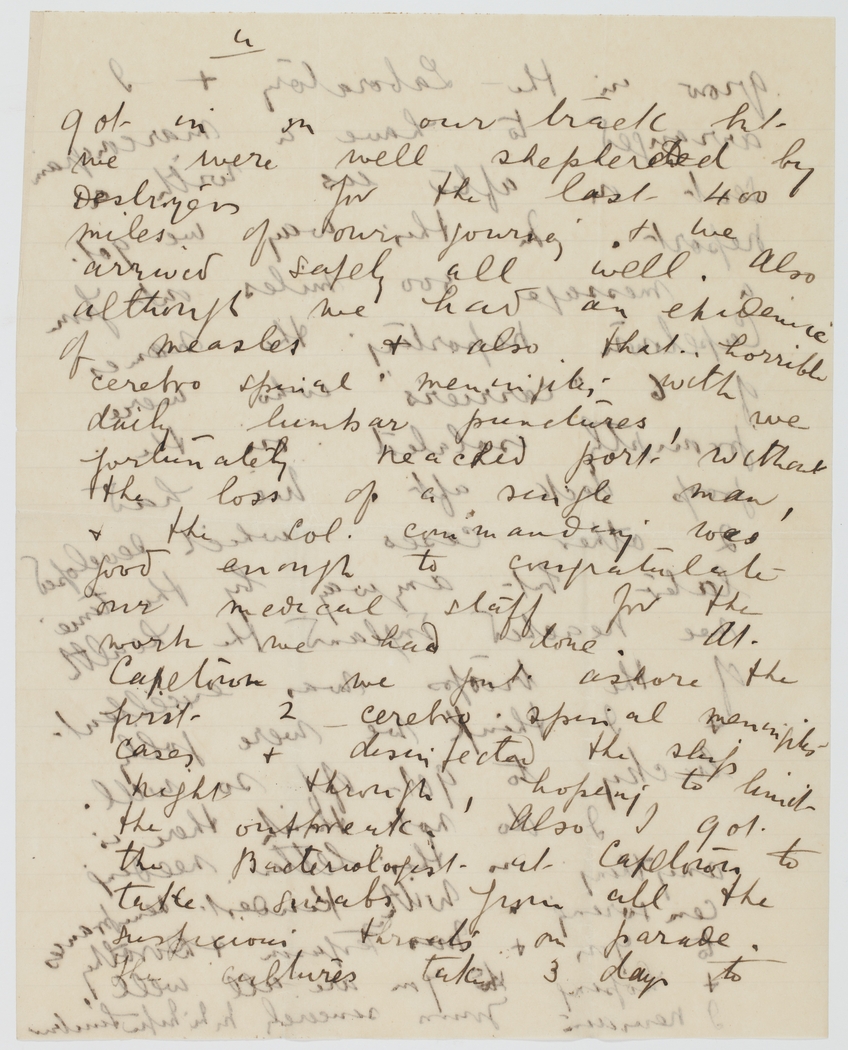 4
got in on our track but
we were well shepherded by
Destroyers for the last 400
miles of our journey & we
arrived safely all well. Also
although we had an epidemic
of measles & also that horrible
cerebro spinal meningitis with
daily lumbar punctures, we
fortunately reached port without
the loss of a single man,
& the Col. commanding was
good enough to congratulate
our medical staff for the
work we had done. At
Capetown we put ashore the
first 2 cerebro spinal meningitis
cases & disinfected the ship
right through, hoping to limit
the outbreak. Also I got
the Bacteriologist at Capetown to
take swabs from all the
suspicious throats on parade.
The cultures take 3 days to